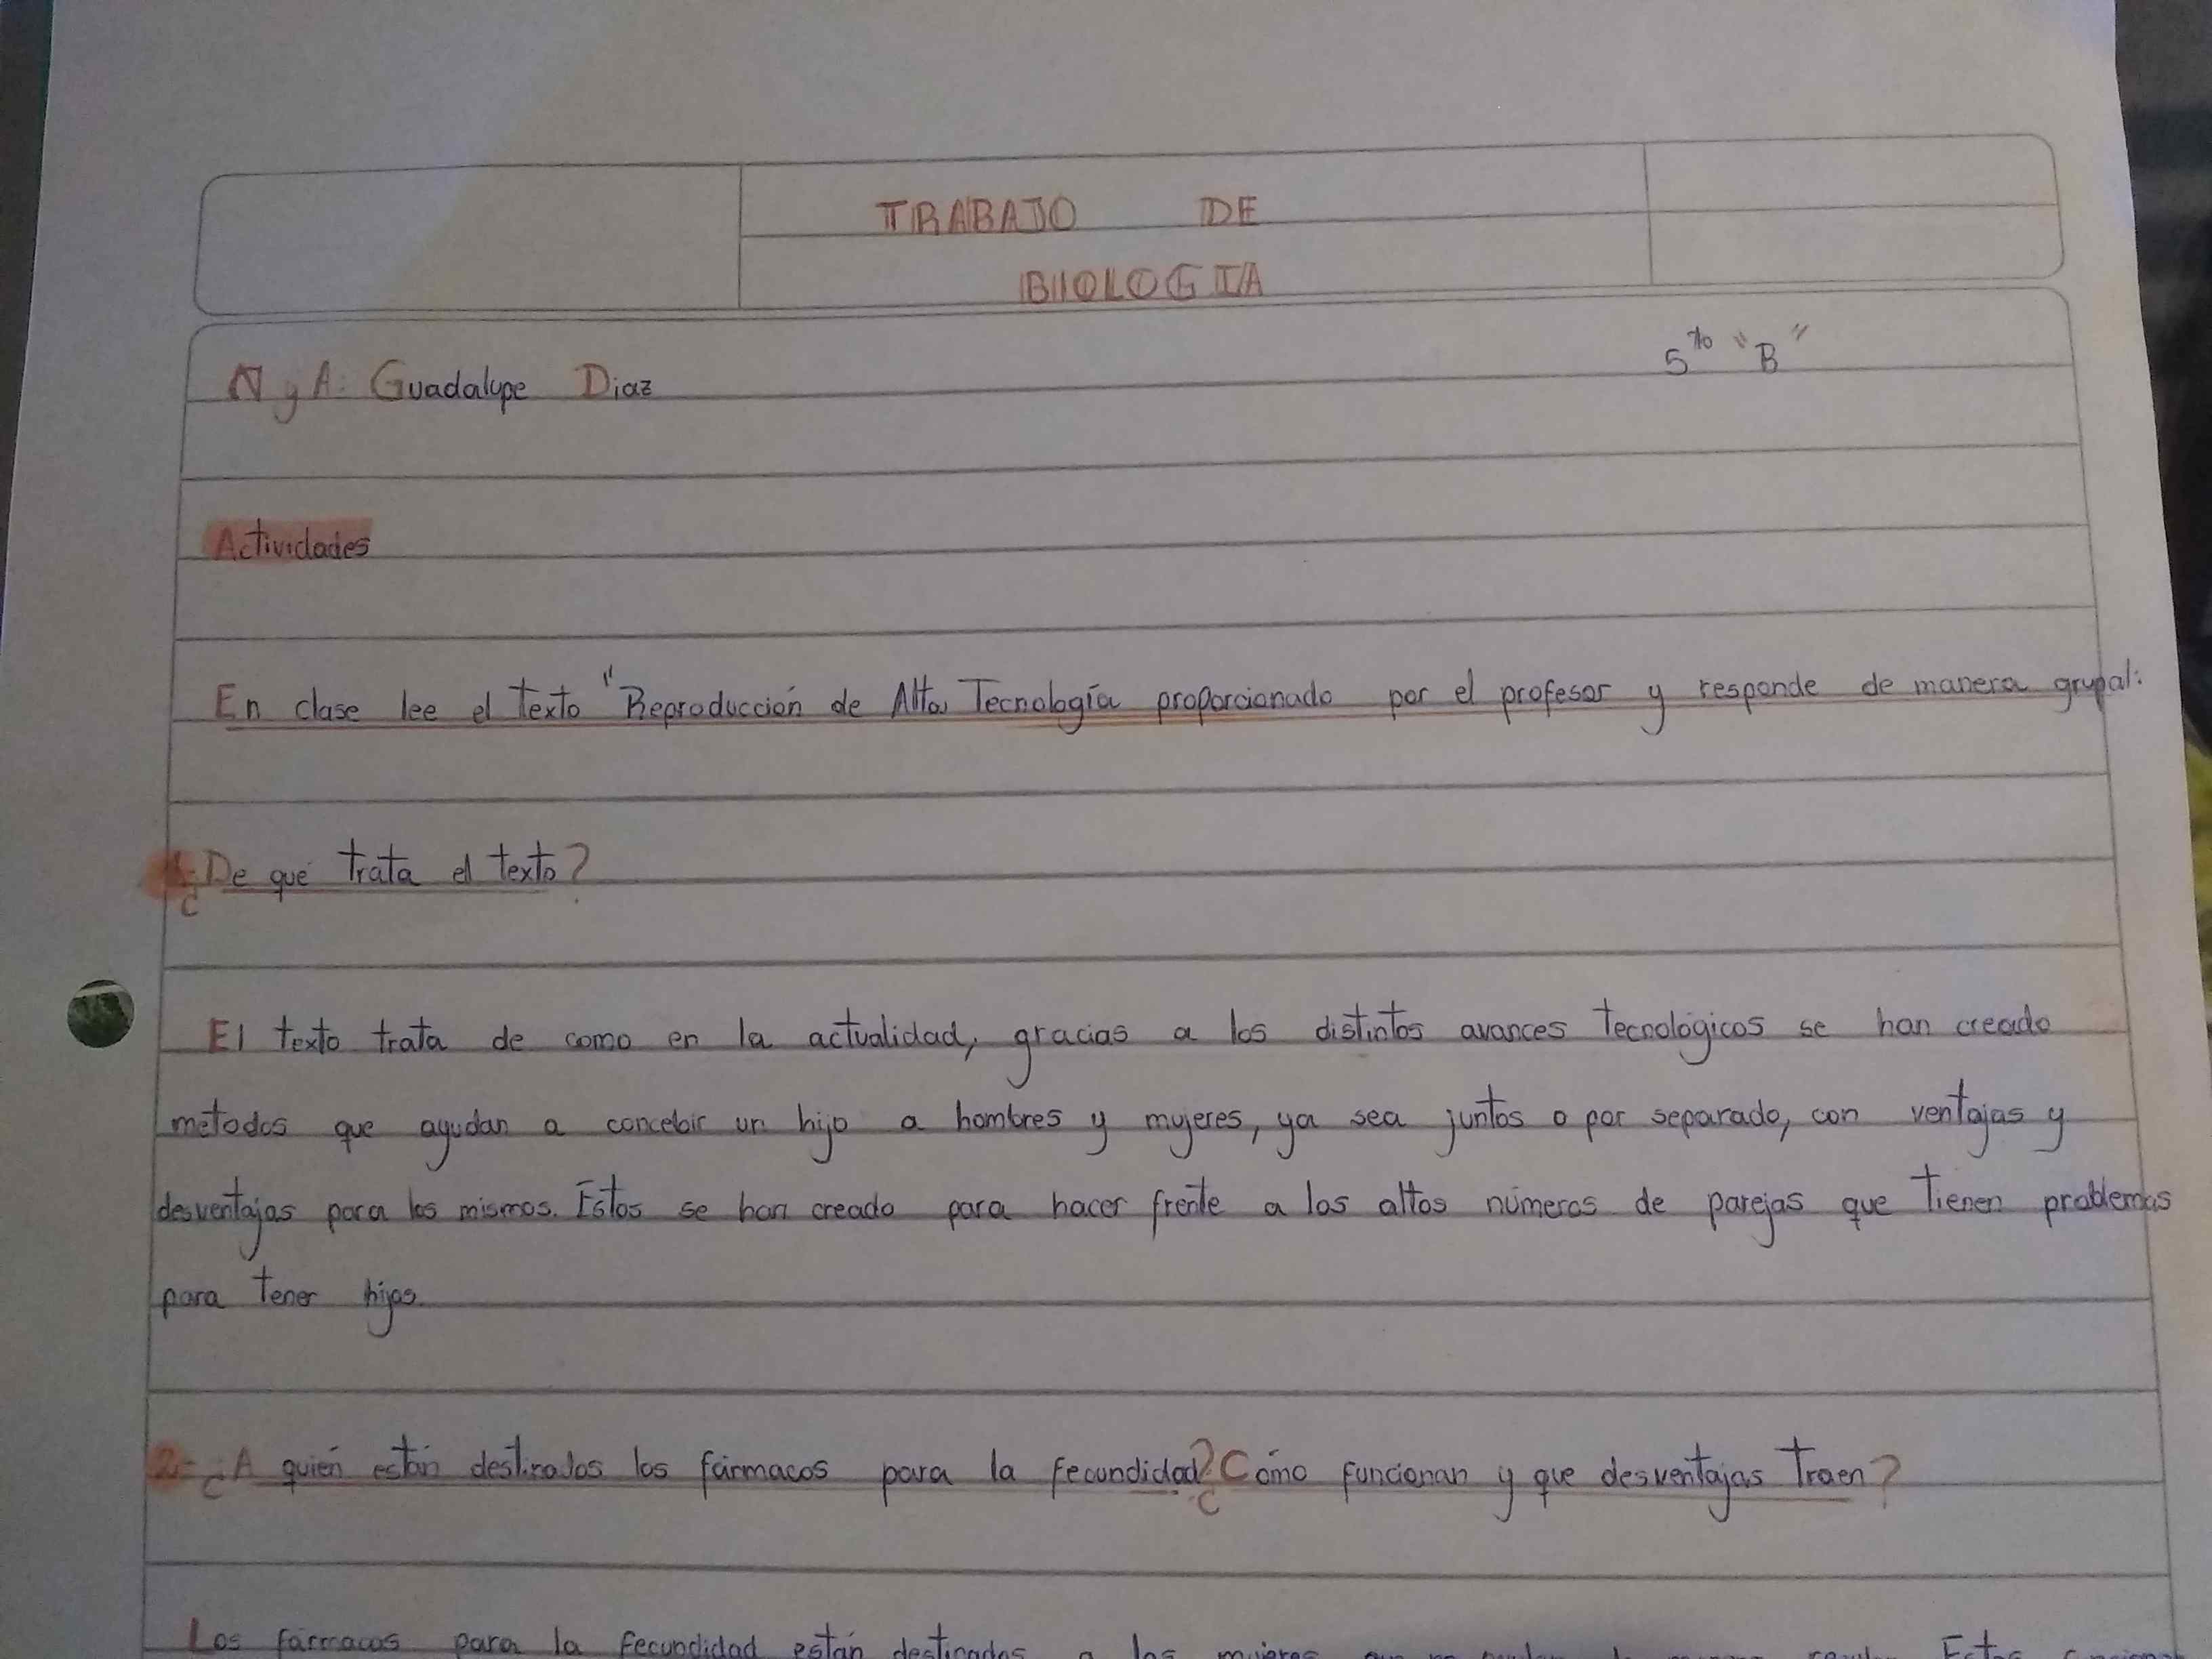 TRABAJO DE
BIOLOGIA
N y A: Guadalupe Diaz
5to "B"
Actividades
En clase lee el texto "Reproducción de Alta Tecnología proporcionado por el profesor y responde de manera grupal:
1- ¿De qué trata el texto?
El texto trata de como en la actualidad, gracias a los distintos avances tecnológicos se han creado
metodos que ayudan a concebir un hijo a hombres y mujeres, ya sea juntos o por separado, con ventajas y
desventajas para los mismos. Estos se han creado para hacer frente a los altos números de parejas que tienen problemas
para tener hijos.
2- ¿A quién están destinados los fármacos para la fecundidad? ¿Cómo funcionan y que desventajas traen?
Los fármacos para la fecundidad están destinados a las mujeres que no Estos